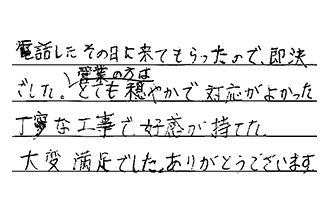 電話したその日に来てもらったので、即決
でした。営業の方は
とても穏やかで対応がよかった
丁寧な工事で好感が持てた
大変満足でした。ありがとうございます